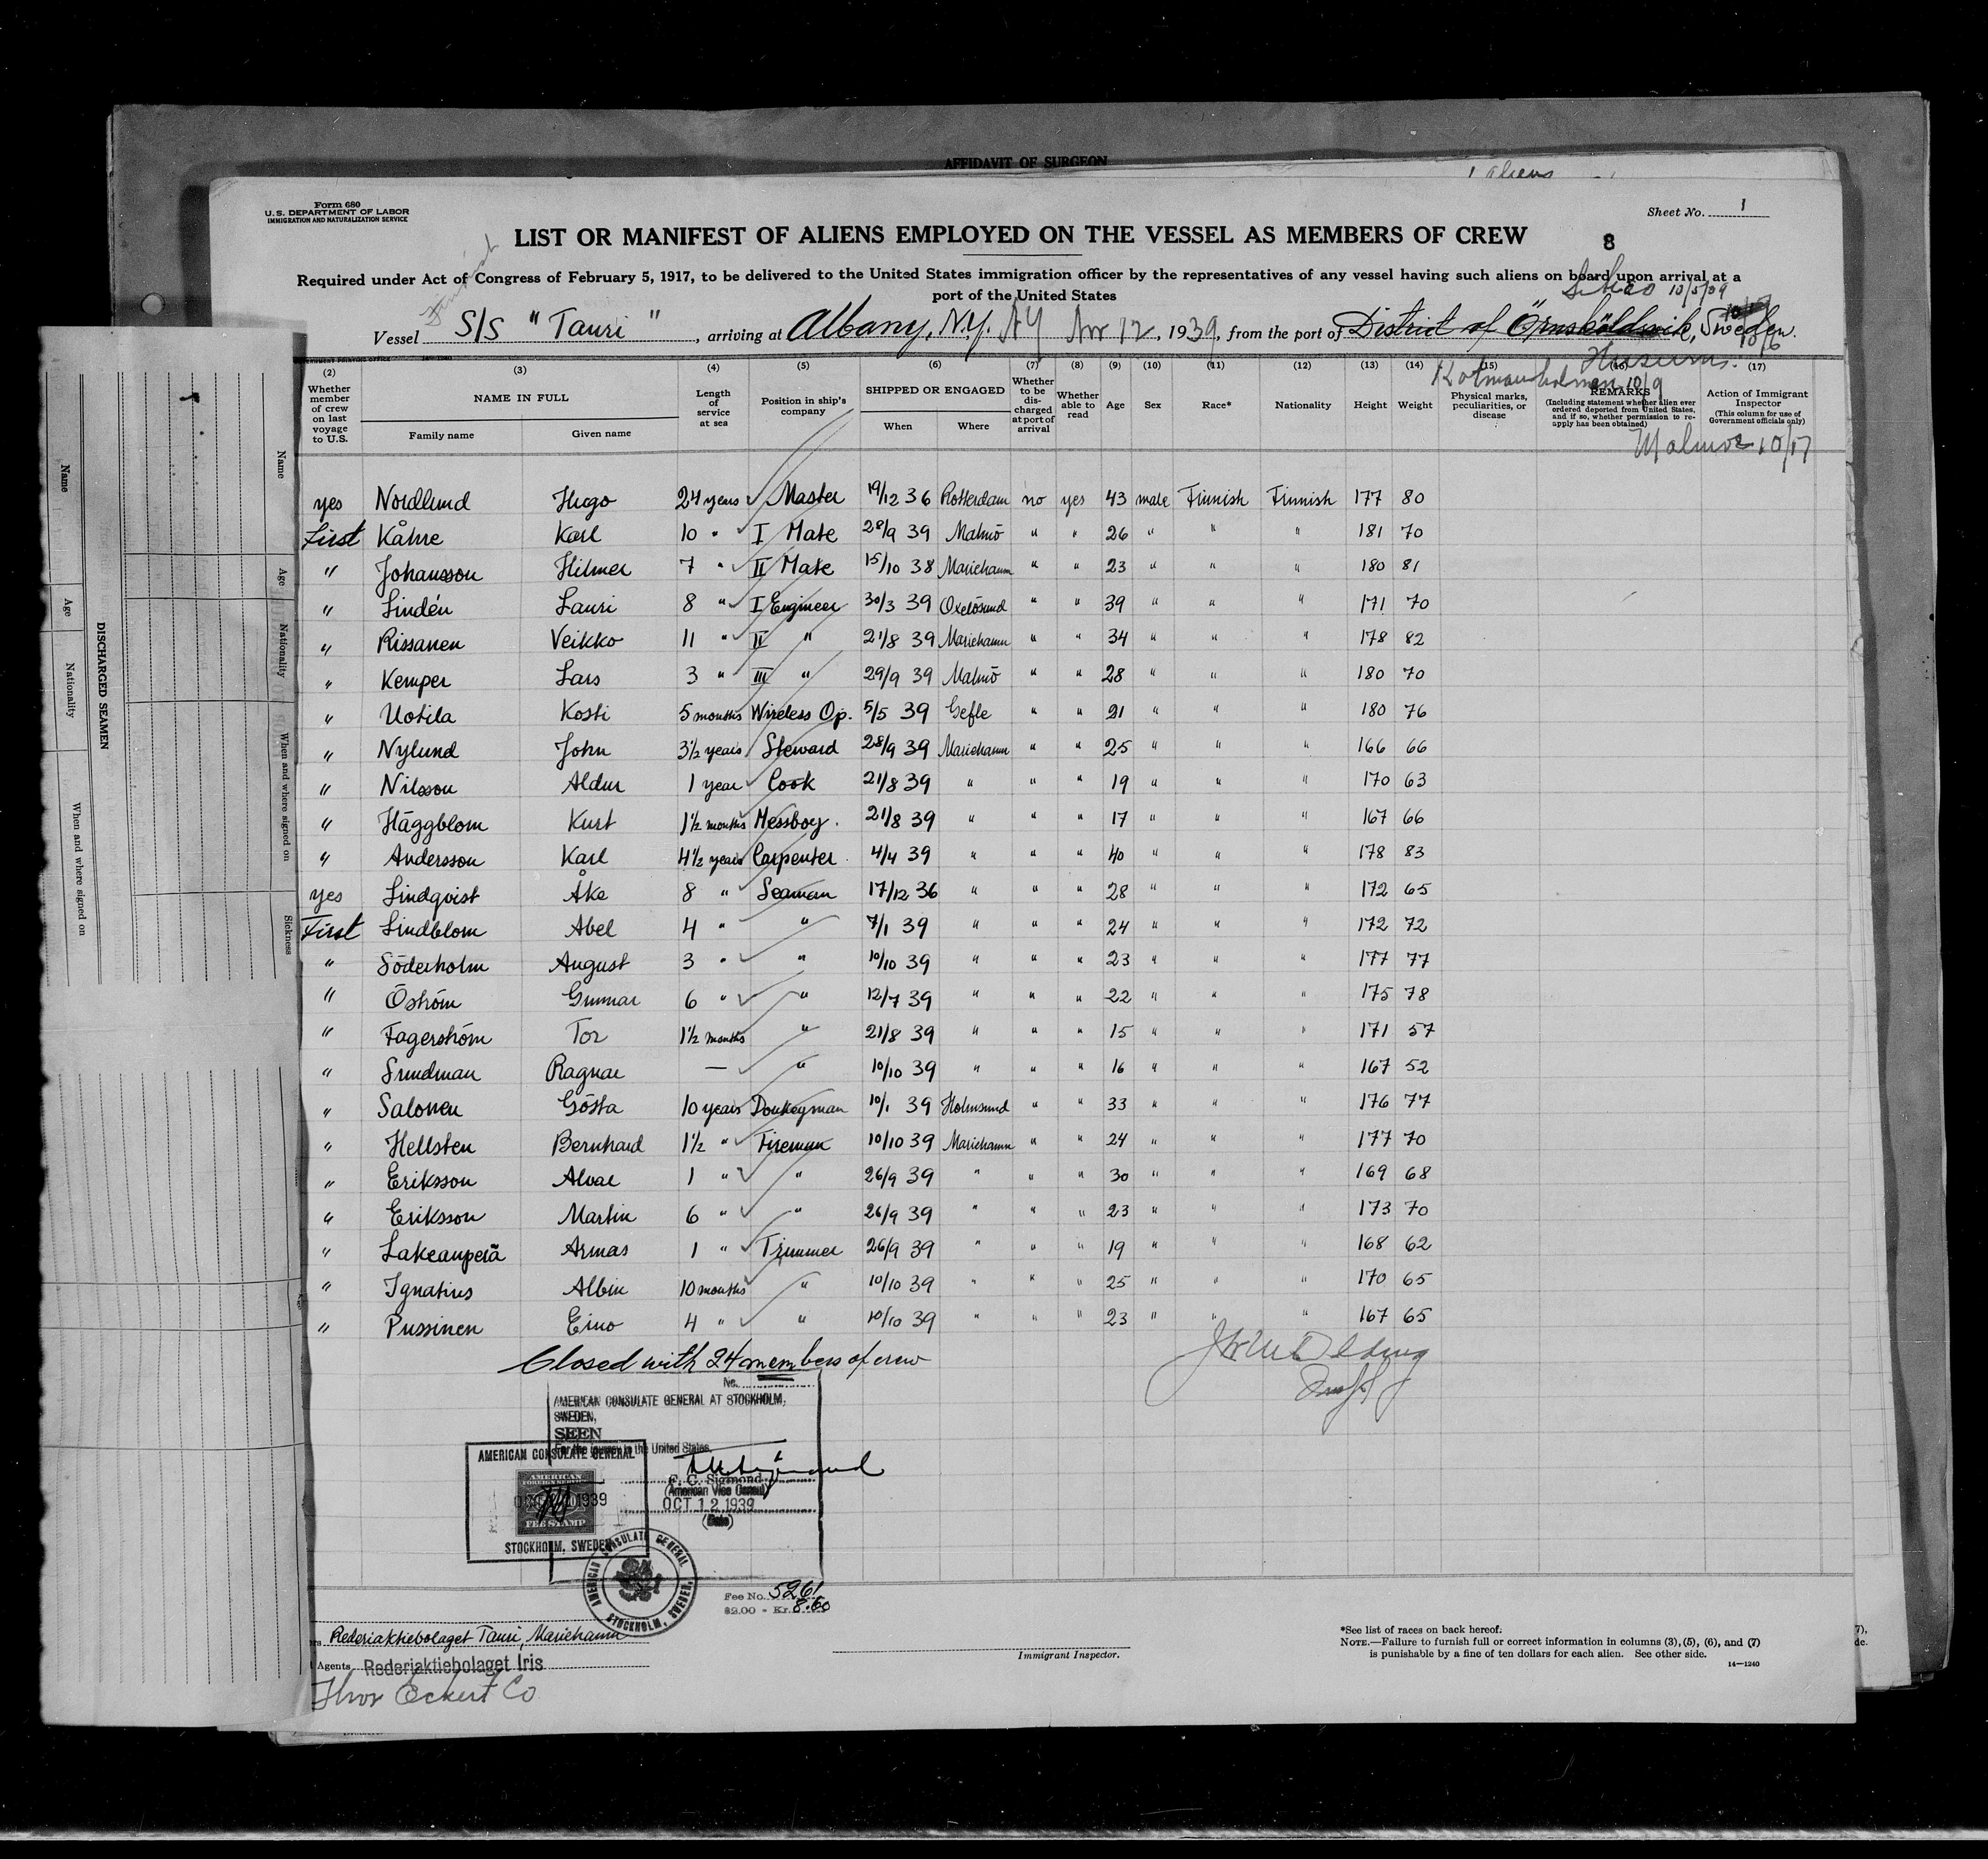 AFFIDAVIT OF SURGEON
aliens
Form 680
U.S. DEPARTMENT OF LABOR
IMMIGRATION AND NATURALIZATION SERVICE
Sheet No. 1
LIST OR MANIFEST OF ALIENS EMPLOYED ON THE VESSEL AS MEMBERS OF CREW
8
Required under Act of Congress of February 5, 1917, to be delivered to the United States immigration officer by the representatives of any vessel having such aliens on board upon arrival at a
port of the United States
10/5/39
Finnish
Vessel S/S "Tauri", arriving at Albany, N.Y. NY Nov 12, 1939, from the port of District of Örnsköldsvik, Sweden.
10/6
Husum
10/9
Malmoe 10/17
(2) (3) (4) (5) (6) (7) (8) (9) (10) (11) (12) (13) (14) (15) (16) (17)
Whether member of crew on last voyage to U.S.
NAME IN FULL
Family name Given name
Length of service at sea
Position in ship's company
SHIPPED OR ENGAGED
When Where
Whether to be discharged at port of arrival
Whether able to read
Age
Sex
Race*
Nationality
Height
Weight
Physical marks, peculiarities, or disease
REMARKS
(Including statement whether alien ever ordered deported from United States, and if so, whether permission to reapply has been obtained)
Action of Immigrant Inspector
(This column for use of Government officials only)
yes Nordlund Hugo 24 years Master 19/12 36 Rotterdam no yes 43 male Finnish Finnish 177 80
First Kåhre Karl 10 " I Mate 28/9 39 Malmö " " 26 " " " 181 70
" Johansson Hilmer 7 " II Mate 15/10 38 Mariehamn " " 23 " " " 180 81
" Lindén Lauri 8 " I Engineer 30/3 39 Oxelösund " " 39 " " " 171 70
" Rissanen Veikko 11 " II " 21/8 39 Mariehamn " " 34 " " " 178 82
" Kemper Lars 3 " III " 29/9 39 Malmö " " 28 " " " 180 70
" Uotila Kosti 5 months Wireless Op. 5/5 39 Gefle " " 21 " " " 180 76
" Nylund John 3½ years Steward 28/9 39 Mariehamn " " 25 " " " 166 66
" Nilsson Aldur 1 year Cook 21/8 39 " " " 19 " " " 170 63
" Häggblom Kurt 1½ months Messboy. 21/8 39 " " " 17 " " " 167 66
" Andersson Karl 4½ years Carpenter 4/4 39 " " " 40 " " " 178 83
yes Lindqvist Åke 8 " Seaman 17/12 36 " " " 28 " " " 172 65
First Lindblom Abel 4 " " 7/1 39 " " " 24 " " " 172 72
" Söderholm August 3 " " 10/10 39 " " " 23 " " " 177 77
" Öström Gunnar 6 " " 12/7 39 " " " 22 " " " 175 78
" Fagerström Tor 1½ months " 21/8 39 " " " 15 " " " 171 57
" Sundman Ragnar — " 10/10 39 " " " 16 " " " 167 52
" Salonen Gösta 10 years Donkeyman 10/1 39 Holmsund " " 33 " " " 176 77
" Hellsten Bernhard 1½ " Fireman 10/10 39 Mariehamn " " 24 " " " 177 70
" Eriksson Alvar 1 " " 26/9 39 " " " 30 " " " 169 68
" Eriksson Martin 6 " " 26/9 39 " " " 23 " " " 173 70
" Lakeanperä Armas 1 " Trimmer 26/9 39 " " " 19 " " " 168 62
" Ignatius Albin 10 months " 10/10 39 " " " 25 " " " 170 65
" Pussinen Eino 4 " " 10/10 39 " " " 23 " " " 167 65
Closed with 24 members of crew
No.
AMERICAN CONSULATE GENERAL AT STOCKHOLM,
SWEDEN,
SEEN
For the journey to the United States.
F. C. Sigmond
(American Vice Consul)
OCT 12 1939
(Date)
AMERICAN CONSULATE GENERAL
AMERICAN
FOREIGN SERVICE
1939
FEE STAMP
STOCKHOLM, SWEDEN
AMERICAN CONSULATE GENERAL
STOCKHOLM, SWEDEN
Fee No. 5261
$2.00 - Kr. 8.60
Rederiaktiebolaget Tauri, Mariehamn
Agents Rederiaktiebolaget Iris
Thor Eckert Co
Immigrant Inspector.
*See list of races on back hereof.
NOTE.—Failure to furnish full or correct information in columns (3), (5), (6), and (7)
is punishable by a fine of ten dollars for each alien. See other side.
14—1240
DISCHARGED SEAMEN
Name Age Nationality When and where signed on
Name Age Nationality When and where signed on Sickness